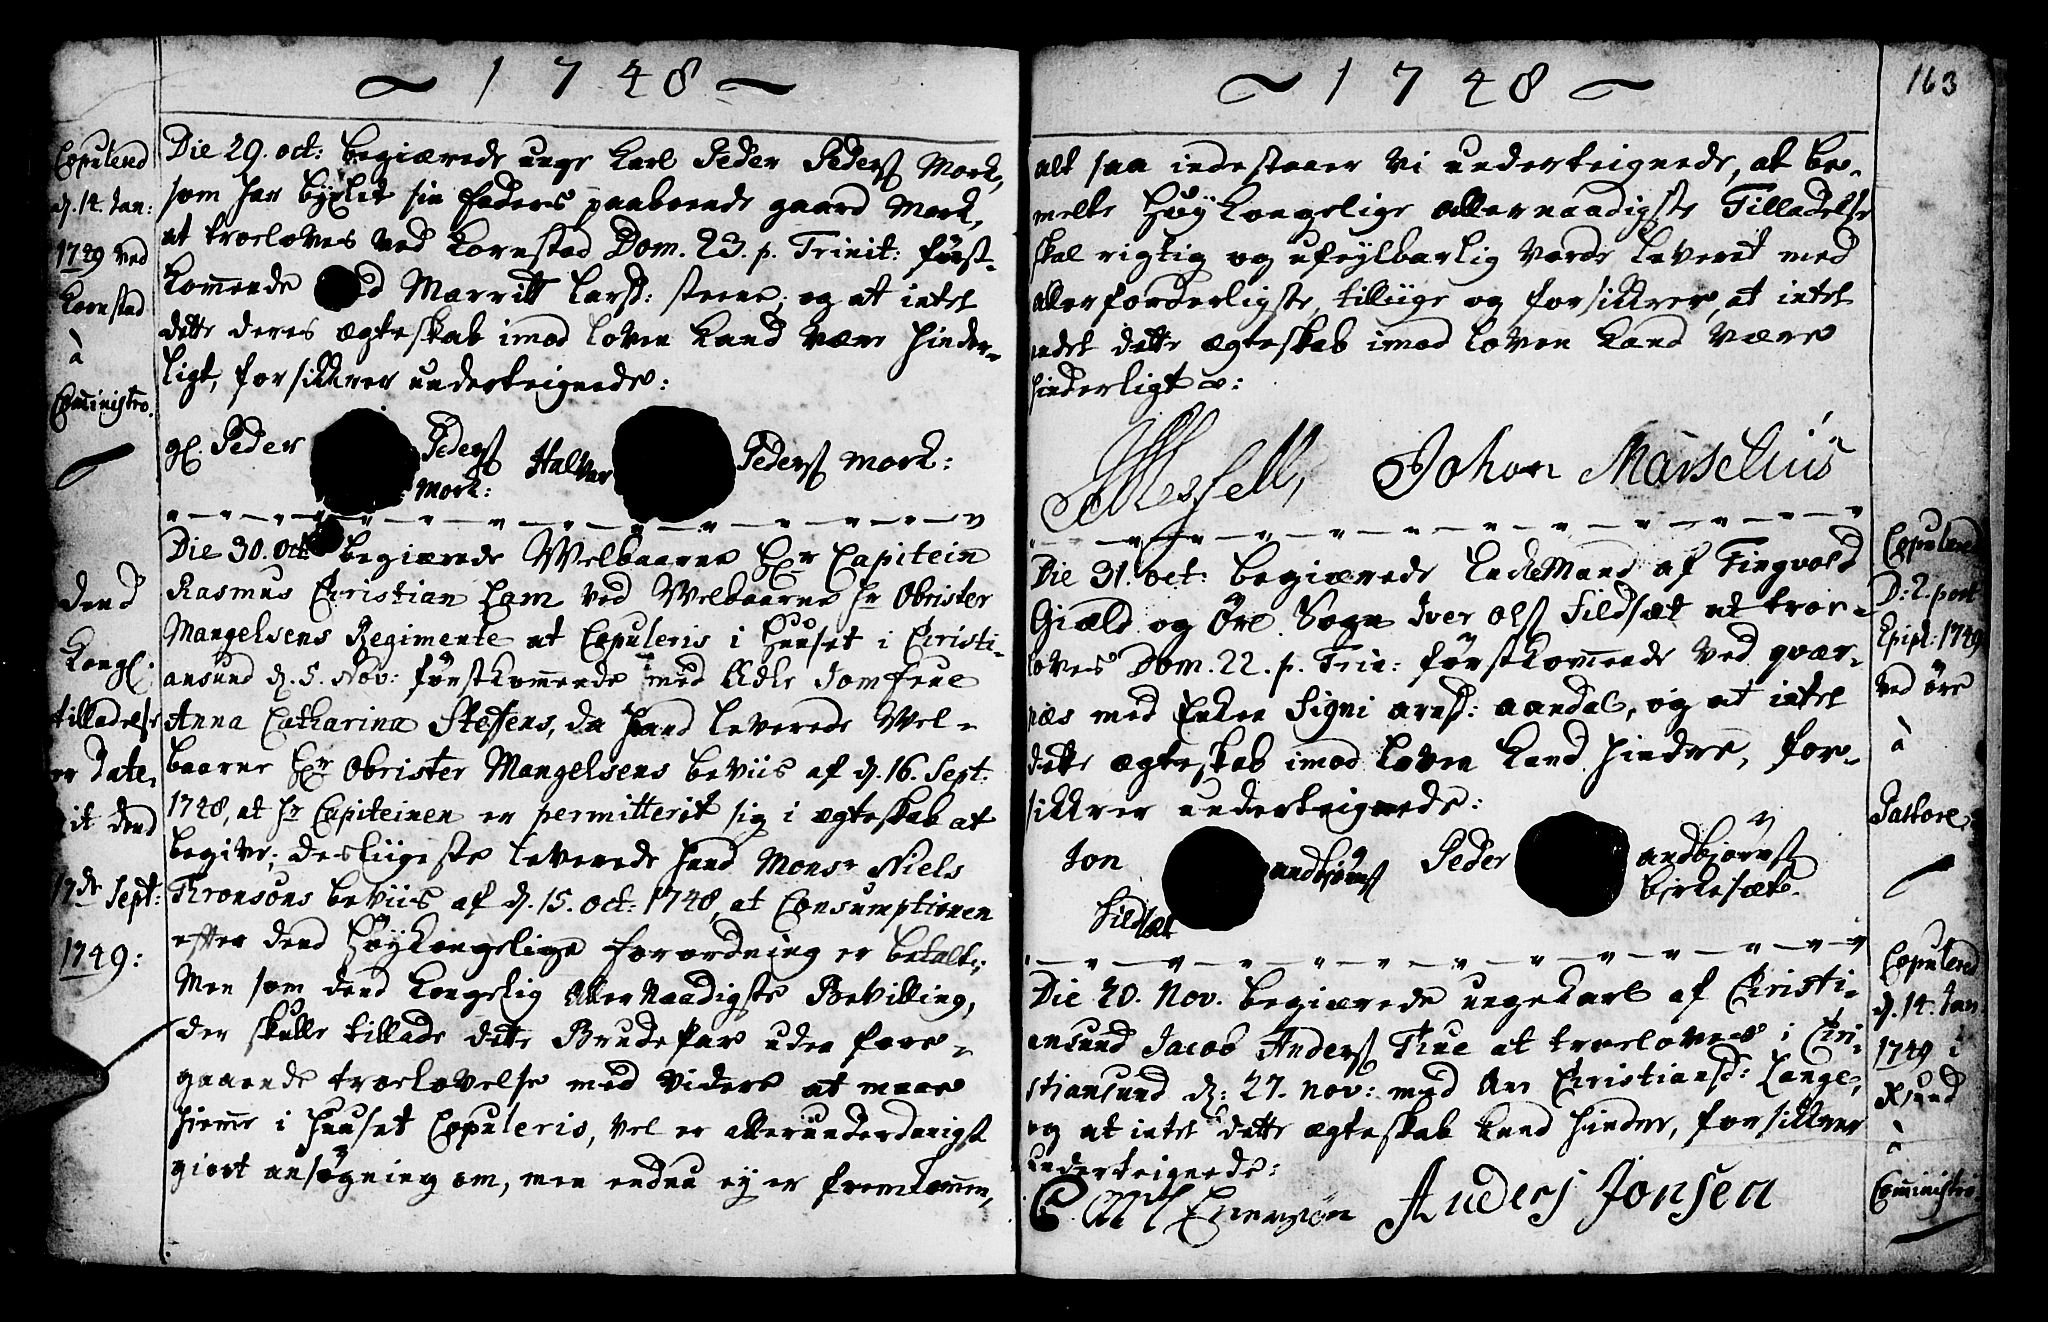 ~ 1748 ~
Copulered
d. 14. Jan:
1749 ved
Kornstad
à
Comministro.
Die 29. oct: begiærede unge Karl Peder Peders Mork,
som har byxlet sin faders paaboende gaard Mork,
at troeloves ved Kornstad Dom. 23. p. Trinit: først-
kommende med Marritt Larsd: steene, og at intet
dette deres ægteskab imod loven kand være hinder-
ligt, forsikkrer underteignede:
gl. Peder Peders Halver Peders Mork:
Mork:
Dend
Kongl:
tilladelse
er Date-
rit dend
17de Sept:
1749:
Die 30. Oct: begiærede Welbaarne Hr Capitein
Rasmus Christian Ham ved Welbaarne Hr Obrister
Mangelsens Regimente at Copuleris i Huuset i Christi-
ansund d. 5. Nov: førstkommende med Ædle Jomfrue
Anna Catharina Steffens, da hand leverede Wel-
baarne Hr Obrister Mangelsens beviis af d. 16. Sept:
1748, at Hr Capiteinen er permitterit sig i ægteskab at
begive; desliigeste leverede hand Monsr Niels
Thronsøns beviis af d. 15. oct: 1748, at Consumptionen
efter dend Høykongelige forordning er betalt;
Men som dend Kongelig Allernaadigste Bevilling,
der skulle tillade dette Brudepar uden fore-
gaaende troelovelse med videre at maae
hiemme i Huuset Copuleris, vel er allerunderdanigst
giort ansøgning om, men endnu ey er fremkommen,
~ 1748 ~
163
alt saa indestaaer vi underteignede, at be-
melte Høykongelige allernaadigste Tilladelse
skal rigtig og ufeylbarlig vorde leveret med
allerforderligste, tilliige og forsikkrer, at intet
andet dette ægteskab imod loven kand være
hinderligt:
Johan Marselius
Copulered
D: 2. post
Epiph: 1749
ved øre
à
Pastore.
Die 31. oct: begiærede Enkemand af Tingvold
Giæld og Øre Sogn Iver Ols Sildsæt at troe-
loves Dom. 22. p. Trin: førstkommende ved qvær-
næs med Enken Signi arnsd: aandal, og at intet
dette ægteskab imod loven kand hindre, for-
sikkrer underteignede:
Jon andbjørns Peder andbjørns
Sildsæt birkesæte.
Copulered
d. 14. Jan
1749 i
Xsund
à
Comministro.
Die 20. Nov. begiærede ungekarl af Christi-
ansund Jacob Anders Tiue at troeloves i Chri-
stiansund d: 27. nov: med An Christiansd: Lange,
og at intet dette ægteskab kand hindre, forsikkrer
underteignede:
Anders Jonsen